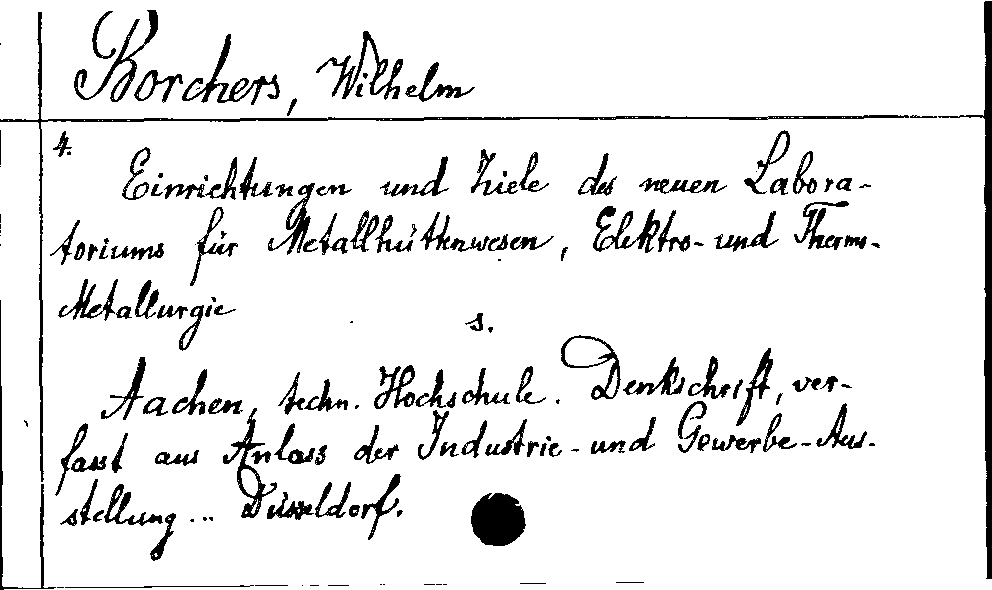 Borchers, Wilhelm
4.
Einrichtungen und Ziele des neuen Labora-
toriums für Metallhüttenwesen, Elektro- und Thermo-
Metallurgie
s.
Aachen, techn. Hochschule. Denkschrift, ver-
fasst aus Anlass der Industrie- und Gewerbe-Aus-
stellung ... Düsseldorf.